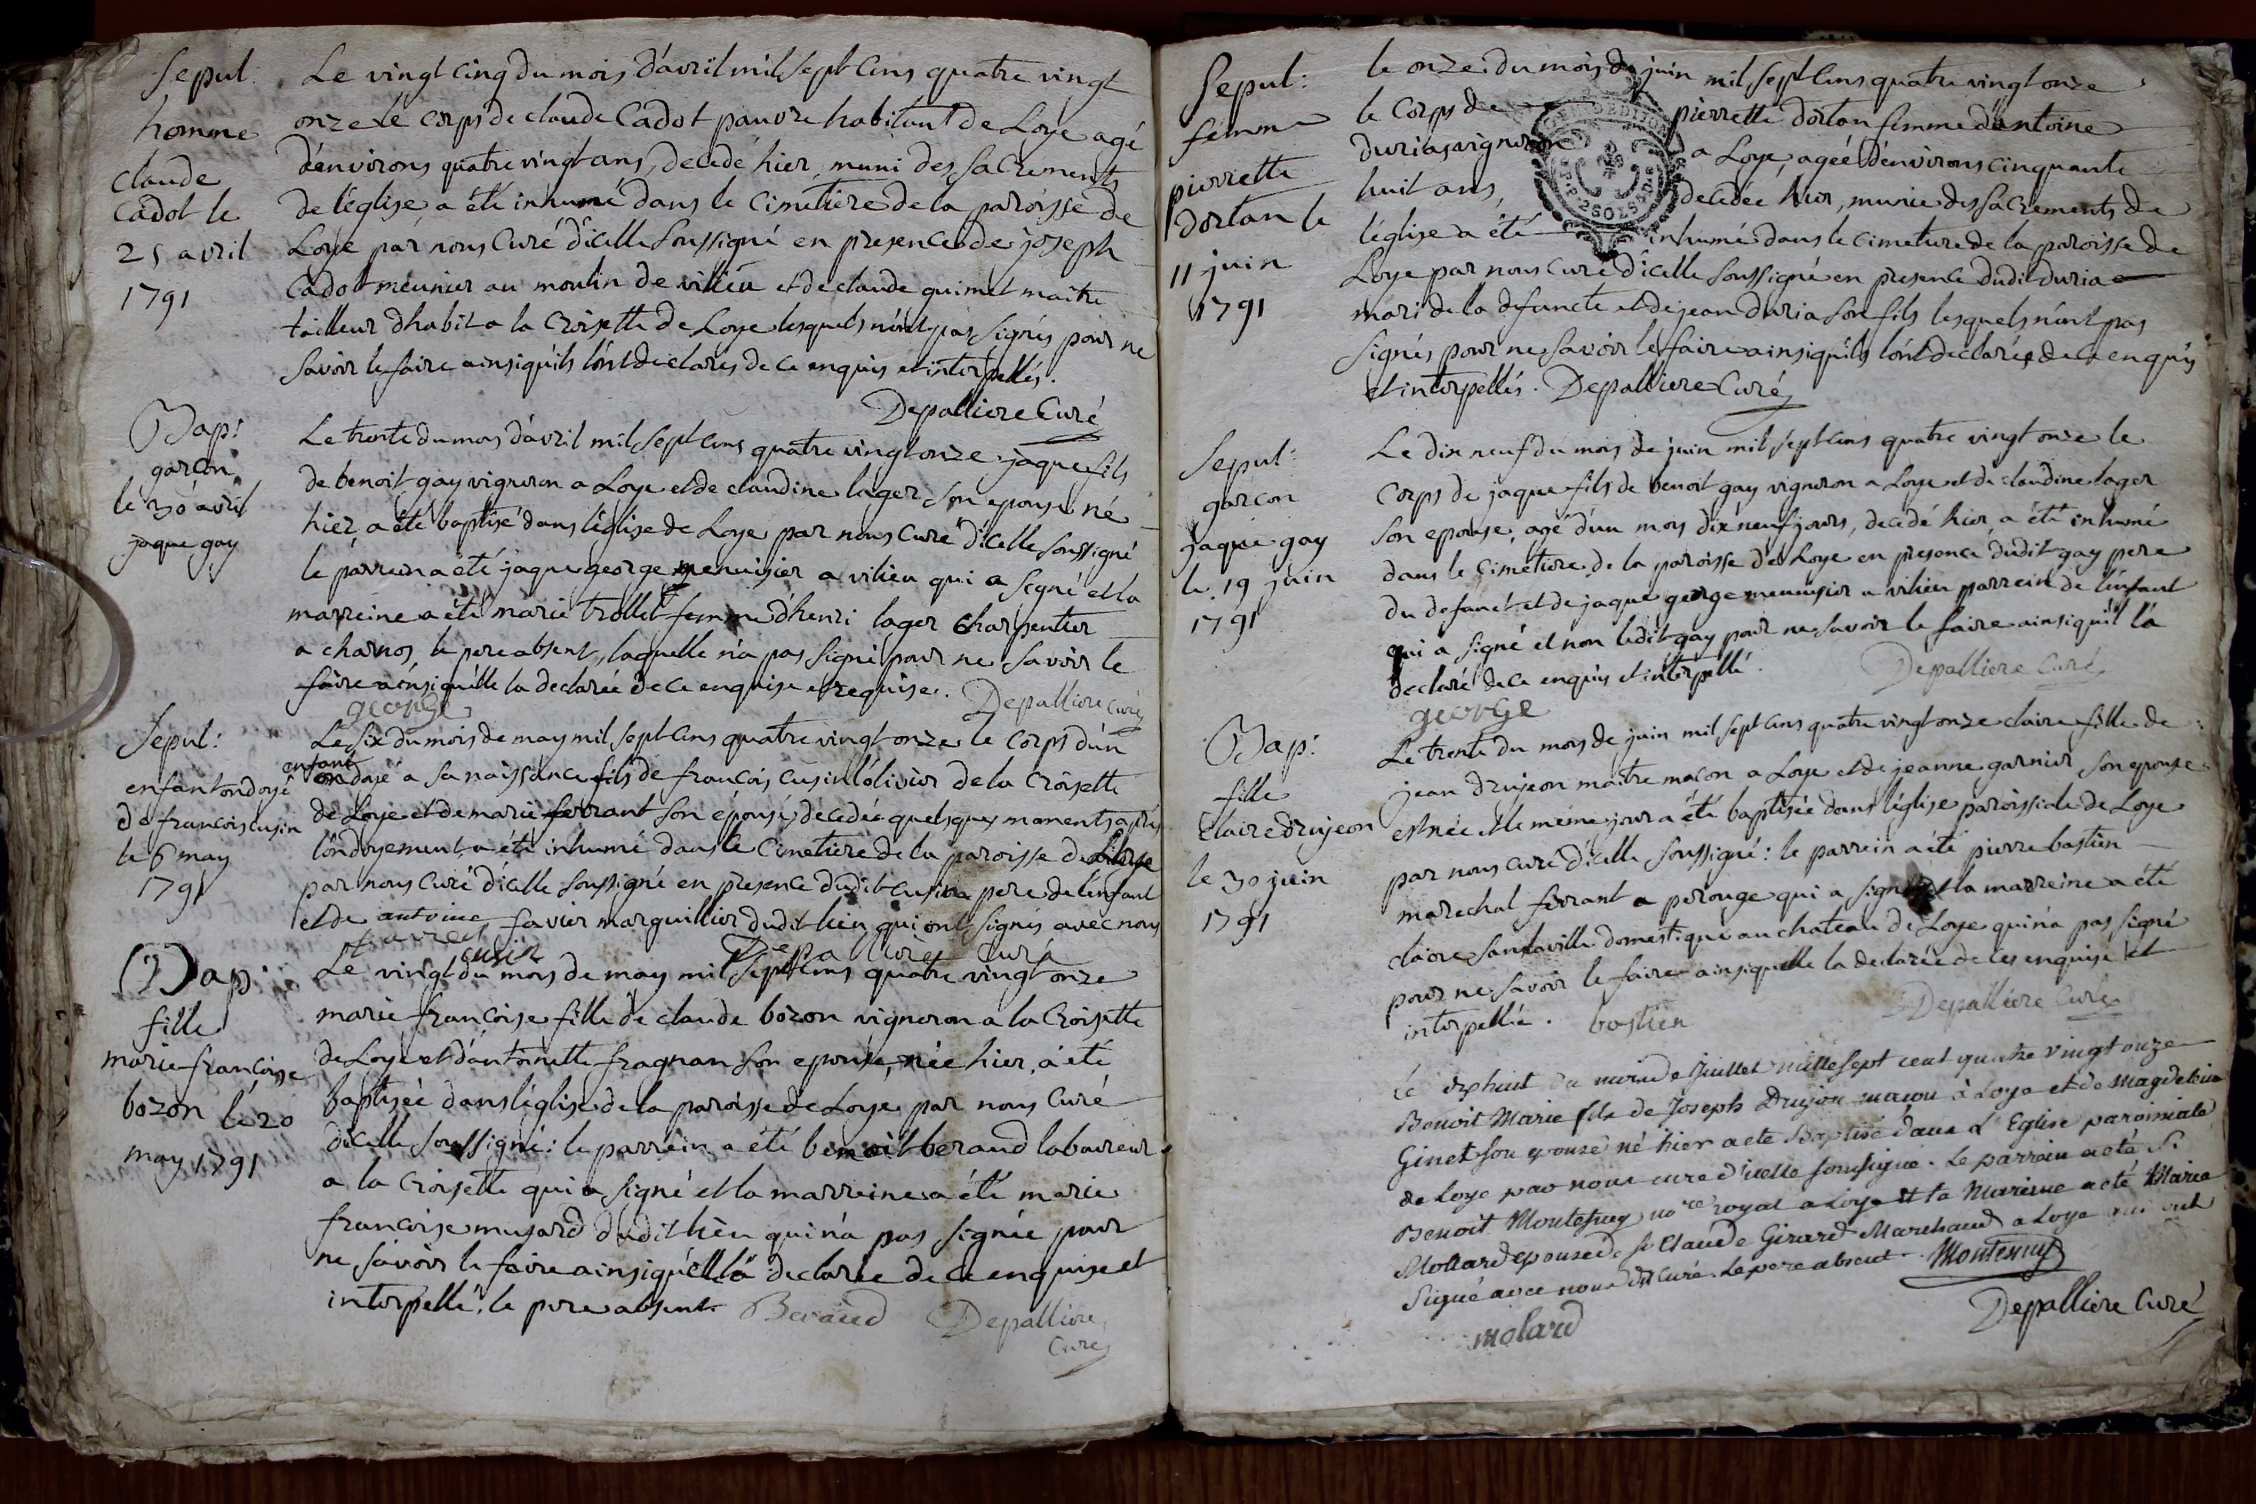 Sepul:
homme
claude
Cadot le
25 avril
1791
Le vingt cinq du mois d'avril mil sept cens quatre vingt
onze le corps de claude Cadot pauvre habitant de Loye agé
d'environs quatre vingt ans, decedé hier, muni des sacrements
de l'église, a été inhumé dans le cimetiere de la paroisse de
Loye par nous Curé d'icelle soussigné en presence de joseph
Cadot meunier au moulin de villieu et de claude guimet maitre
tailleur d'habit a la Croisette de Loye lesquels n'ont pas signés pour ne
savoir le faire ainsi qu'ils l'ont declarés de ce enquis et interpellés.
Depalliere Curé
Bap:
garcon
le 30 avril
jaque gay
Le trente du mois d'avril mil sept cens quatre vingt onze jaque fils
de benoit gay vigneron a Loye et de claudine lager son epouse né
hier, a été baptisé dans l'église de Loye par nous Curé d'icelle soussigné
le parrein a été jaque george menuisier a vilieu qui a signé et la
marreine a été marie trollet femme d'henri lager Charpentier
a charnos, le pere absent, laquelle n'a pas signé pour ne savoir le
faire ainsi qu'elle la declarée de ce enquise et requise. Depalliere Curé
george
Sepul:
enfant ondoyé
de francois cusin
le 6 may
1791
Le six du mois de may mil sept cens quatre vingt onze le corps d'un
enfant
ondoyé a sa naissance fils de francois cusin l'olivier de la Croisette
de Loye et de marie ferrant son épouse, décédé quelques moments après
l'ondoyement, a été inhumé dans le cimetiere de la paroisse de Loye
par nous Curé d'icelle soussigné en presence dudit cusin pere de l'enfant
et de antoine favier marguillier dudit lieu qui ont signés avec nous
cusin Depalliere Curé
Bap:
fille
marie francoise
bozon le 20
may 1791
Le vingt du mois de may mil sept cens quatre vingt onze
marie francoise fille de claude bozon vigneron a la Croisette
de Loye et d'antoinette fragnan son epouse, née hier, a été
baptisée dans l'église de la paroisse de Loye par nous Curé
d'icelle soussigné: le parrein a été benoit beraud laboureur
a la Croisette qui a signé et la marreine a été marie
francoise musard dudit lieu qui n'a pas signée pour
ne savoir le faire ainsi qu'elle la declarée de ce enquise et
interpellé, le pere absent Beraud Depalliere
Curé
Sepul:
femme
pierrette
dortan le
11 juin
1791
le onze du mois de juin mil sept cens quatre vingt onze
le Corps de pierrette dortan femme d'antoine
duria vigneron a Loye, agée d'environs cinquante
huit ans, decedée hier, munie des sacrements de
l'église a été inhumé dans le cimetiere de la paroisse de
Loye par nous Curé d'icelle soussigné en presence dudit duria
mari de la defuncte et de jean duria son fils lesquels n'ont pas
signés pour ne savoir le faire ainsi qu'ils l'ont declarés de ce enquis
et interpellés. Depalliere Curé
Sepul:
garcon
jaque gay
le 19 juin
1791
Le dix neuf du mois de juin mil sept cens quatre vingt onze le
Corps de jaque fils de benoit gay vigneron a Loye et de claudine lager
son epouse, agé d'un mois dix neuf jours, decedé hier, a été inhumé
dans le cimetiere de la paroisse de Loye en presence dudit gay pere
du defunct et de jaque george menuisier a vilieu parrein de l'enfant
qui a signé et non ledit gay pour ne savoir le faire ainsi qu'il l'a
declaré de ce enquis et interpellé. Depalliere Curé
george
Bap:
fille
claire drujeon
le 30 juin
1791
Le trente du mois de juin mil sept cens quatre vingt onze claire fille de
jean drujeon maitre macon a Loye et de jeanne garnier son epouse
est née et le même jour a été baptisée dans l'église paroissiale de Loye
par nous curé d'icelle soussigné: le parrein a été pierre bastien
marechal ferrant a perouge qui a signé et la marreine a été
claire sandaville domestique au chateau de Loye qui n'a pas signé
pour ne savoir le faire ainsi quelle la declarée de ces enquise et
interpellée. bastien Depalliere Curé
Le dixhuit du mois de Juillet mille sept cent quatre vingt onze
Benoit Marie fils de Joseph Drujon macon à Loye et de Magdeleine
Ginet son epouse né hier a ete Baptisé dans l'Eglise paroissiale
de Loye par nous curé d'icelle soussigné. Le parrain a eté Sr
Benoit Montessuy nore royal a Loye et la Mareine a eté Marie
Mollard epouse de Sr Claude Girard Marchand a Loye qui ont
Signé avec nous dit Curé. Le pere absent Montessuy
molard Depalliere Curé